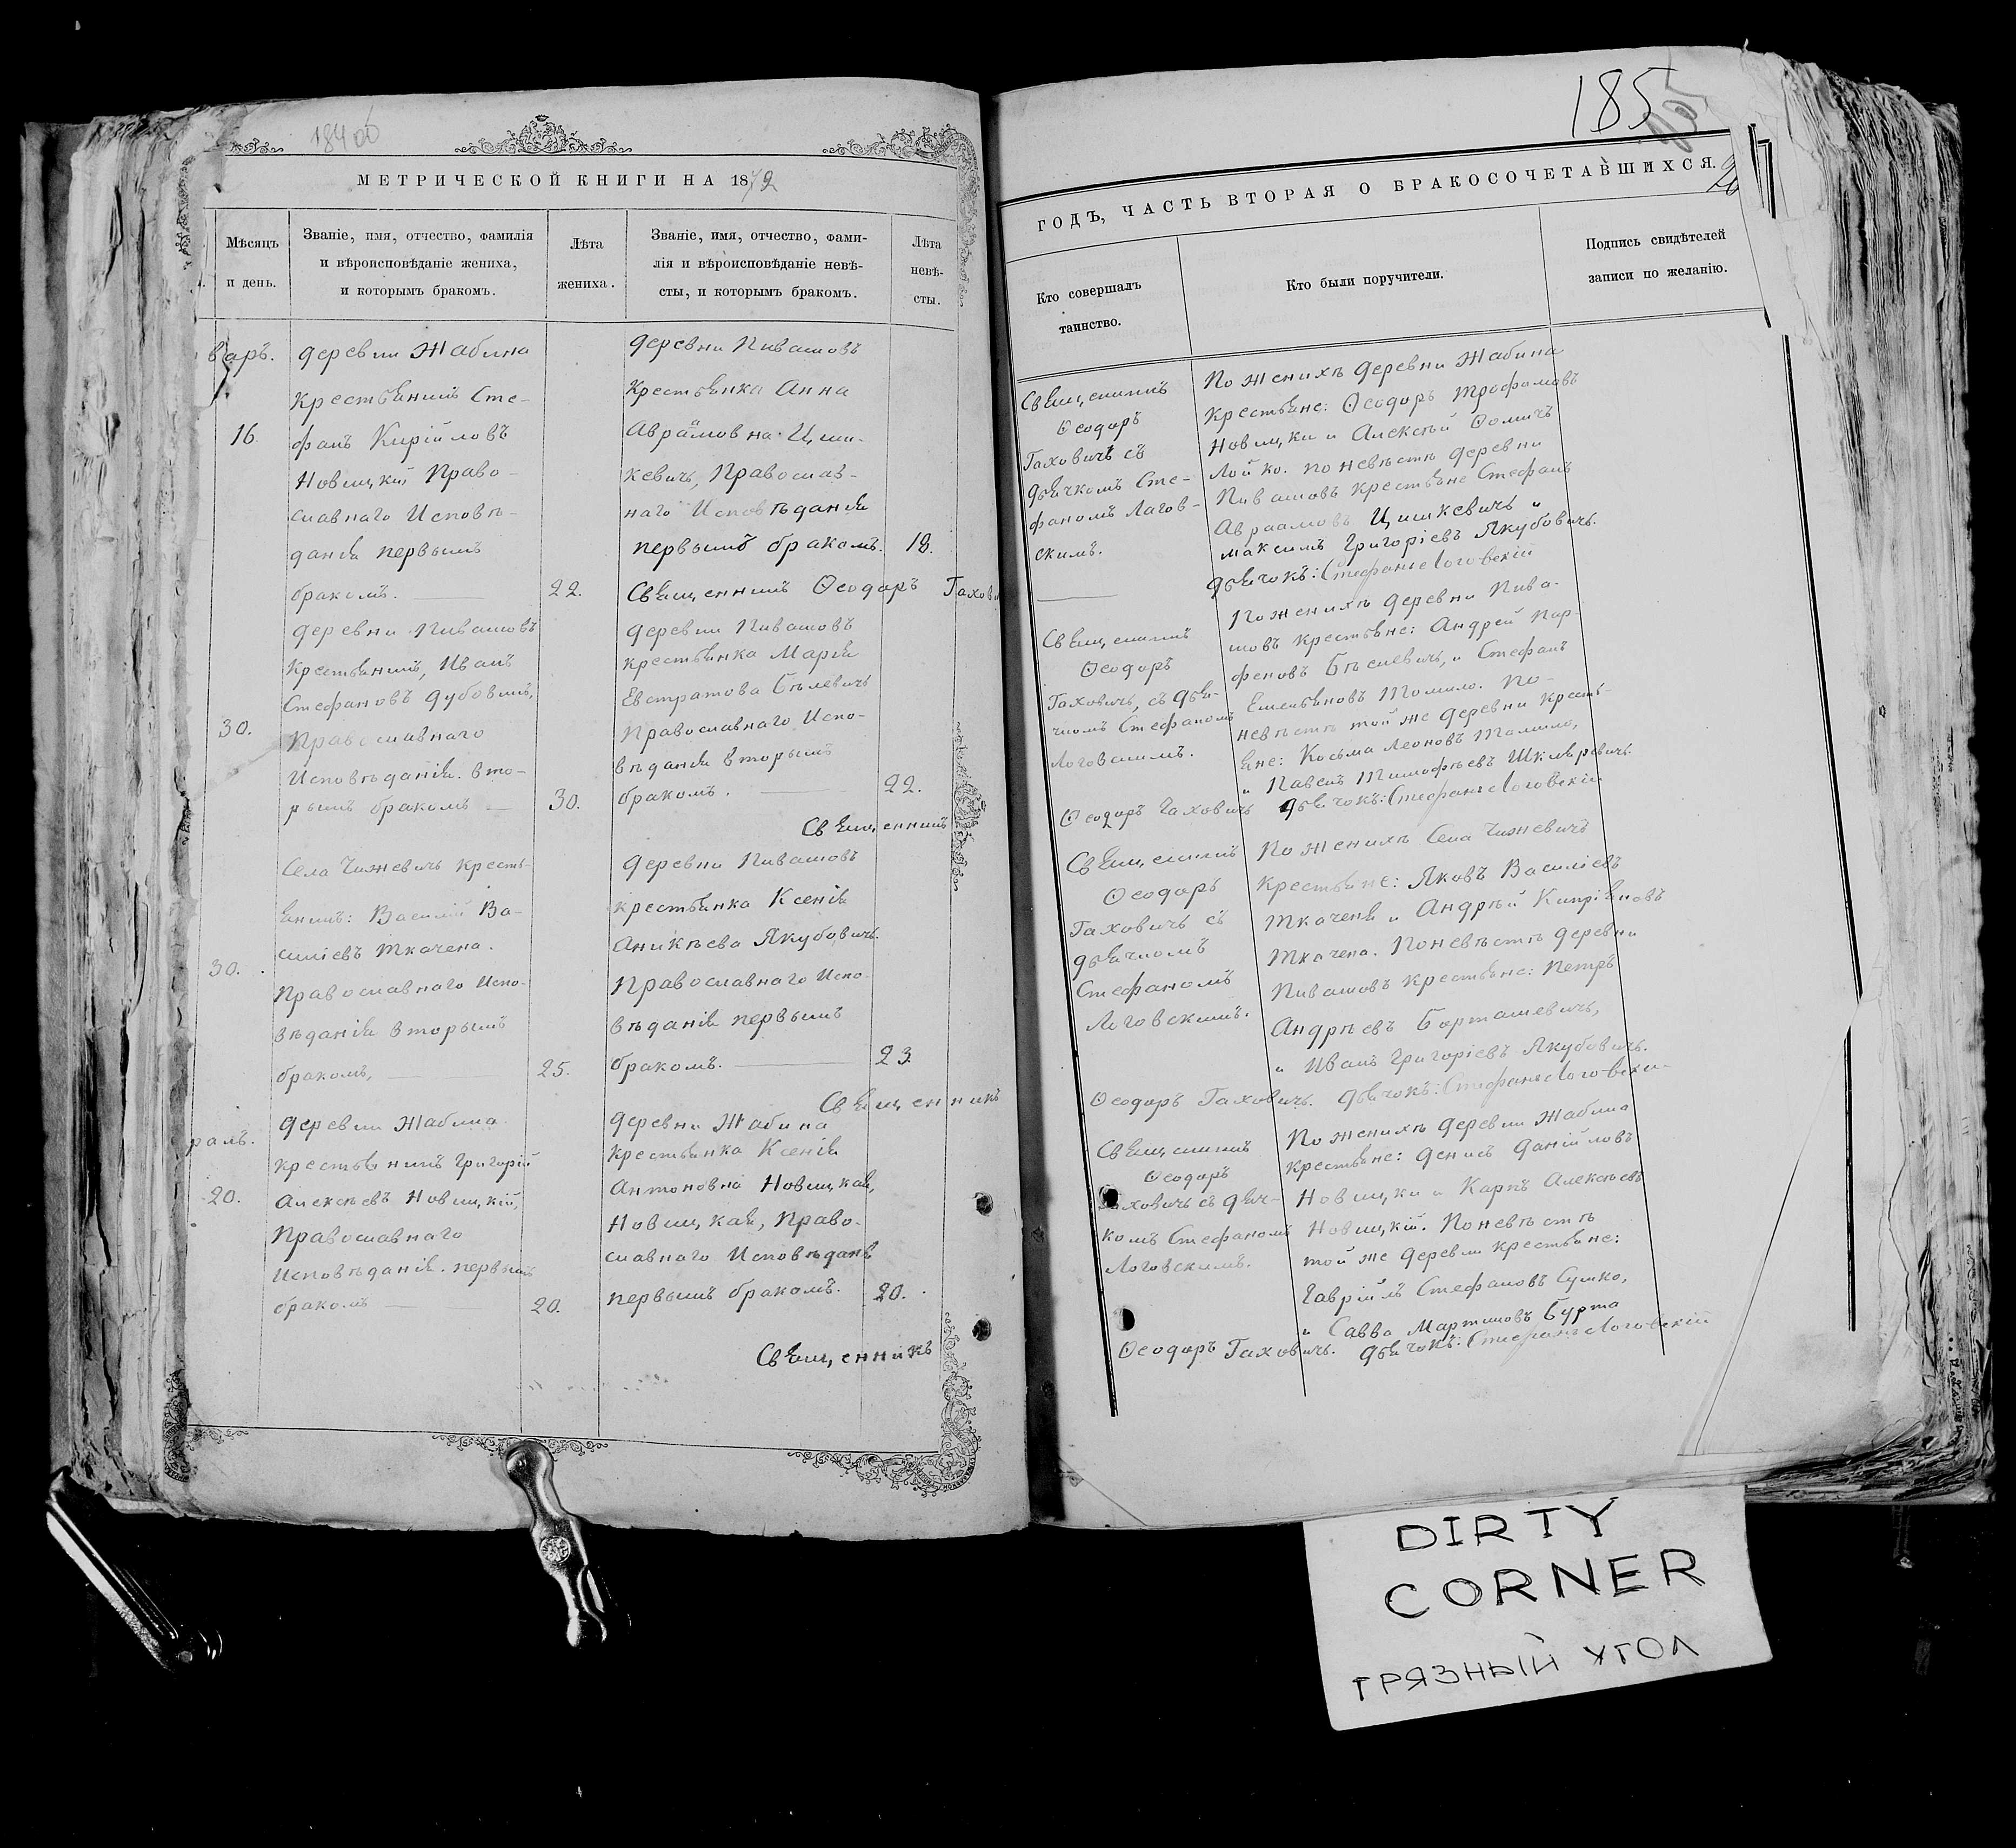 18400
МЕТРИЧЕСКОЙ КНИГИ НА 1872
Мѣсяцъ
и день.
Званіе, имя, отчество, фамилія
и вѣроисповѣданіе жениха,
и которымъ бракомъ.
Лѣта
жениха.
Званіе, имя, отчество, фами-
лія и вѣроисповѣданіе невѣ-
сты, и которымъ бракомъ.
Лѣта
невѣ-
сты.
варь.
16.
Деревни Жабина
Крестьянинъ Сте-
фанъ Кирійловъ
Новицкій Право-
славнаго Исповѣ-
данія первымъ
бракомъ.
22.
Деревни Пивашовъ
Крестьянка Анна
Аврамовна Циш-
кевичъ, Православ-
наго Исповѣданія
первымъ бракомъ.
18.
Священникъ Ѳеодоръ Гахов
30.
Деревни Пивашовъ
Крестьянинъ, Иванъ
Стефановъ Дубовикъ,
Православнаго
Исповѣданія. вто-
рымъ бракомъ
30.
Деревни Пивашовъ
крестьянка Марія
Евстратова Бѣлевичъ
Православнаго Испо-
вѣданія вторымъ
бракомъ.
22.
Священникъ
30.
Села Чижевичъ Кресть-
янинъ: Василій Ва-
силіевъ Ткачена.
Православнаго Испо-
вѣданія вторымъ
бракомъ,
25.
Деревни Пивашовъ
крестьянка Ксенія
Аникѣева Якубовичъ.
Православнаго Испо-
вѣданія первымъ
бракомъ.
23
Священникъ
раль.
20.
Деревни Жабина
крестьянинъ Григорій
Алексѣевъ Новицкій,
Православнаго
Исповѣданія. первымъ
бракомъ
20.
Деревни Жабина
Крестьянка Ксенія
Антоновна Новицкая,
Новицкая, Право-
славнаго Исповѣданія
первымъ бракомъ.
20.
Священникъ
185
ГОДЪ, ЧАСТЬ ВТОРАЯ О БРАКОСОЧЕТАВШИХСЯ.
Кто совершалъ
таинство.
Кто были поручители.
Подпись свидѣтелей
записи по желанію.
Священникъ
Ѳеодоръ
Гаховичъ съ
дьячкомъ Сте-
фаномъ Лагов-
скимъ.
По женихѣ деревни Жабина
Крестьяне: Ѳеодоръ Трофимовъ
Новицки и Алексѣй Ѳомичъ
Лойко. по невѣстѣ деревни
Пивашовъ Крестьяне Стефанъ
Авраамовъ Цишкевичъ и
Максимъ Григоріевъ Якубовичъ.
Дьячокъ: Стефанъ Логовскій
Священникъ
Ѳеодоръ
Гаховичъ, съ дья-
чкомъ Стефаномъ
Логовскимъ.
По женихѣ деревни Пива-
шовъ крестьяне: Андрей Пар
феновъ Бѣлевичъ, и Стефанъ
Емельяновъ Томило. По-
невѣстѣ той же деревни Кресть-
яне: Косьма Леоновъ Томило,
" Павелъ Тимофѣевъ Шкляревичъ
Ѳеодоръ Гаховичъ Дьячокъ: Стефанъ Логовскій
Священникъ
Ѳеодоръ
Гаховичъ съ
дьячкомъ
Стефаномъ
Логовскимъ.
По женихѣ Села Чижевичъ
Крестьяне: Яковъ Василіевъ
Ткаченя и Андрѣй Кипріановъ
Ткачена. По невѣстѣ деревни
Пивашовъ Крестьяне: Петръ
Андрѣевъ Борташевичъ,
" Иванъ Григоріевъ Якубовичъ.
Ѳеодоръ Гаховичъ. Дьячокъ: Стефанъ Логовски
Священникъ
Ѳеодоръ
Гаховичъ съ дьяч-
комъ Стефаномъ
Логовскимъ.
По женихѣ деревни Жабина
Крестьяне: Денисъ Даніиловъ
Новицки и Карпъ Алексѣевъ
Новицкій. По невѣстѣ
той же деревни крестьяне:
Гавріилъ Стефановъ Сушко,
" Савва Мартиновъ Бурта
Ѳеодоръ Гаховичъ. Дьячокъ: Стефанъ Логовскій
DIRTY
CORNER
ГРЯЗНЫЙ УГОЛ